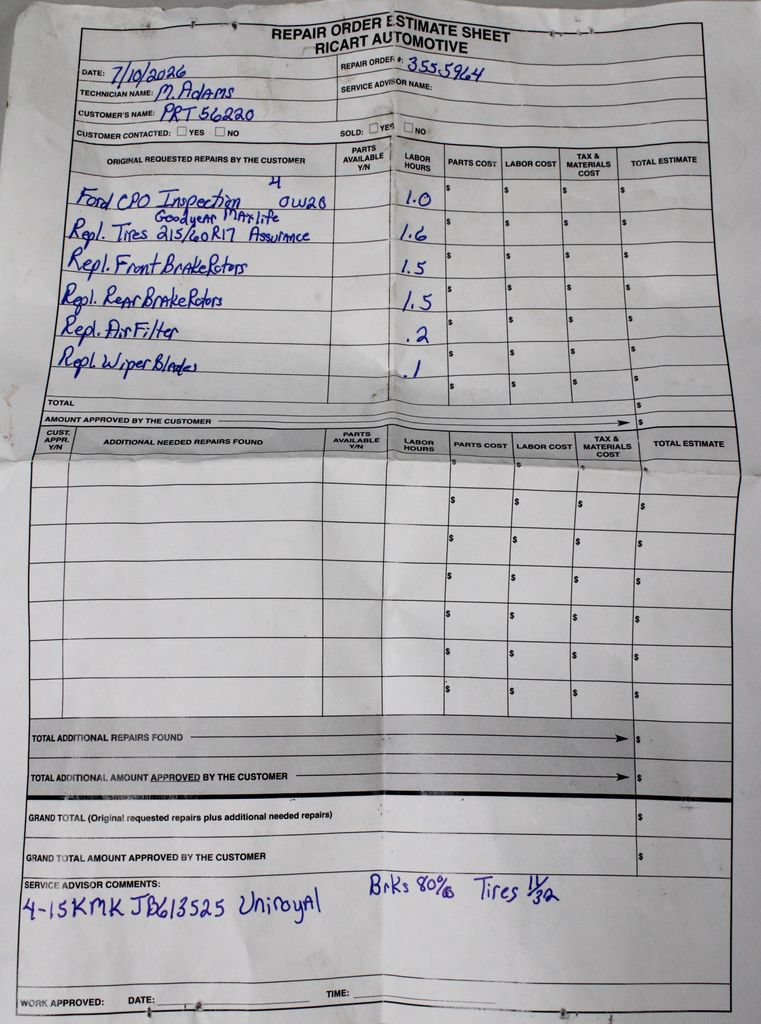 REPAIR ORDER ESTIMATE SHEET
RICART AUTOMOTIVE
DATE: 7/10/2026
REPAIR ORDER #: 3555964
TECHNICIAN NAME: M. Adams
SERVICE ADVISOR NAME:
CUSTOMER'S NAME: PRT 56220
CUSTOMER CONTACTED: YES NO SOLD: YES NO
ORIGINAL REQUESTED REPAIRS BY THE CUSTOMER PARTS AVAILABLE Y/N LABOR HOURS PARTS COST LABOR COST TAX & MATERIALS COST TOTAL ESTIMATE
4
Ford CPO Inspection 0W20 1.0 $ $ $ $
Goodyear Maxlife
Repl. Tires 215/60R17 Assurance 1.6 $ $ $ $
Repl. Front Brake Rotors 1.5 $ $ $ $
Repl. Rear Brake Rotors 1.5 $ $ $ $
Repl. Air Filter .2 $ $ $ $
Repl. Wiper Blades .1 $ $ $ $
$ $ $ $
TOTAL $
AMOUNT APPROVED BY THE CUSTOMER $
CUST. APPR. Y/N ADDITIONAL NEEDED REPAIRS FOUND PARTS AVAILABLE Y/N LABOR HOURS PARTS COST LABOR COST TAX & MATERIALS COST TOTAL ESTIMATE
$ $ $ $
$ $ $ $
$ $ $ $
$ $ $ $
$ $ $ $
$ $ $ $
$ $ $ $
TOTAL ADDITIONAL REPAIRS FOUND $
TOTAL ADDITIONAL AMOUNT APPROVED BY THE CUSTOMER $
GRAND TOTAL (Original requested repairs plus additional needed repairs) $
GRAND TOTAL AMOUNT APPROVED BY THE CUSTOMER $
SERVICE ADVISOR COMMENTS:
Brks 80% Tires 11/32
4-15KMK JB613525 Uniroyal
WORK APPROVED: DATE: TIME: